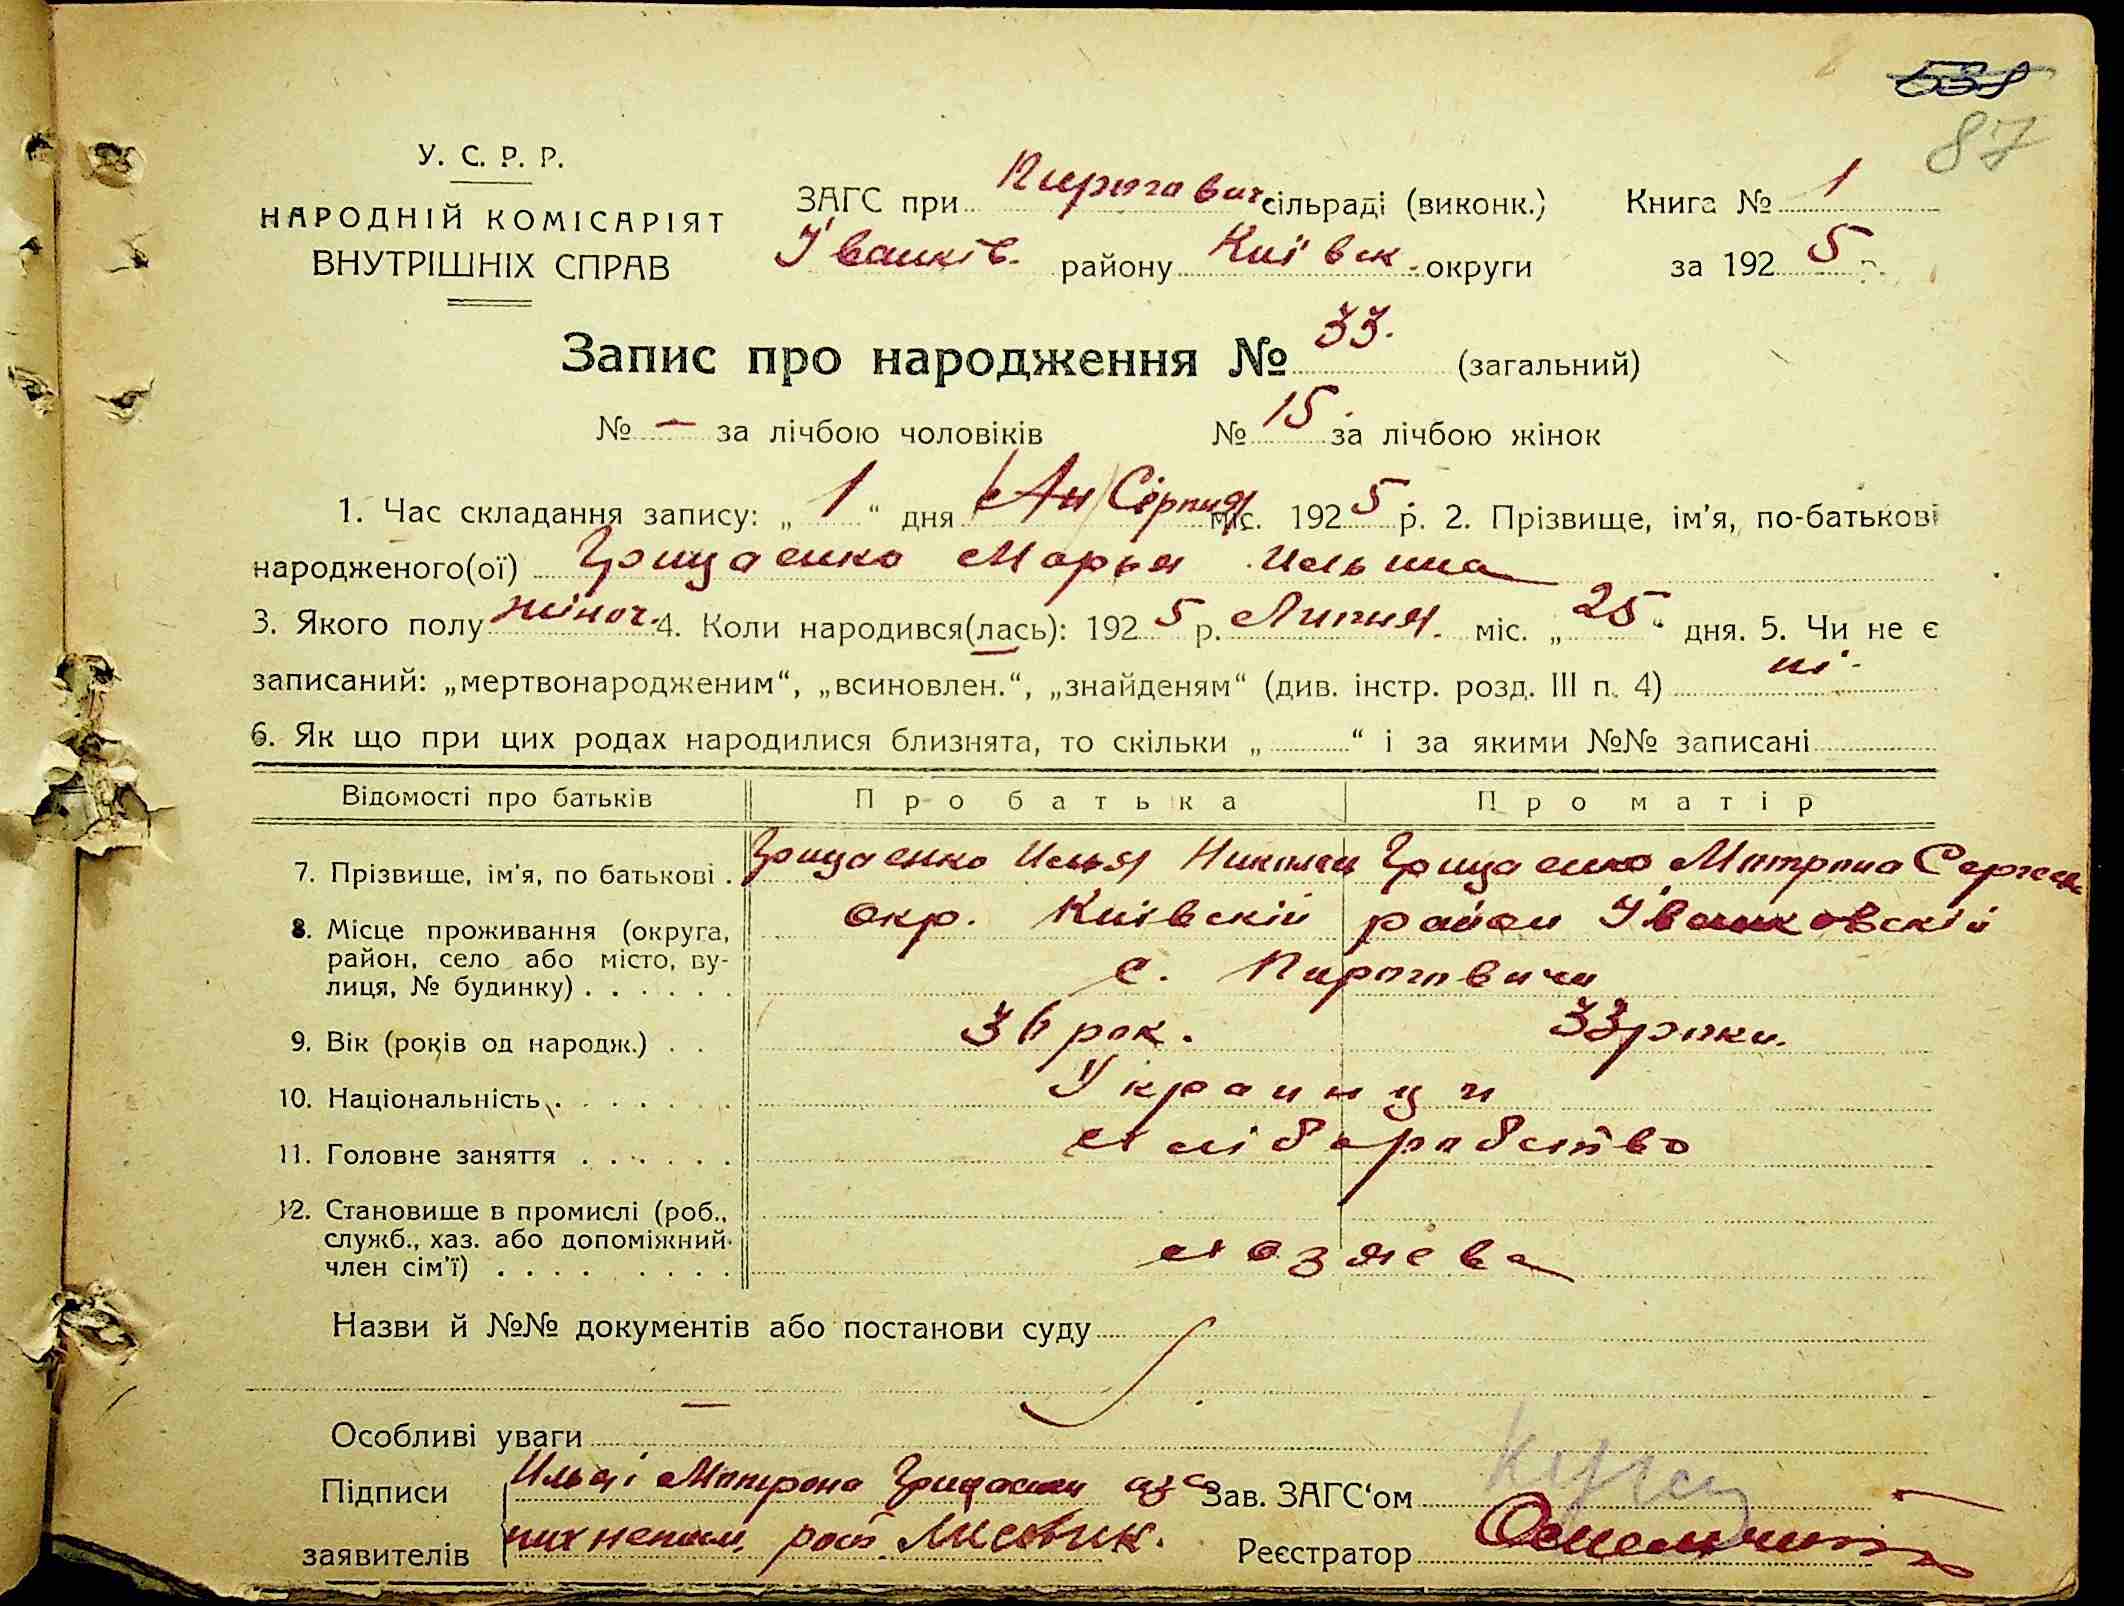 538
87
У. С. Р. Р.
НАРОДНІЙ КОМІСАРІЯТ
ВНУТРІШНІХ СПРАВ
ЗАГС при Пирогович. сільраді (виконк.) Книга № 1
Іванків. району Київск. округи за 1925 р.
Запис про народження № 33. (загальний)
№ — за лічбою чоловіків № 15. за лічбою жінок
1. Час складання запису: „ 1 “ дня Серпня міс. 1925 р. 2. Прізвище, ім'я, по-батькові
народженого(ої) Грищаенко Марья Ильина
3. Якого полу жіноч. 4. Коли народився(лась): 1925 р. Липня. міс. „ 25 “ дня. 5. Чи не є
записаний: „мертвонародженим“, „всиновлен.“, „знайденям“ (див. інстр. розд. III п. 4) ні.
6. Як що при цих родах народилися близнята, то скільки „ “ і за якими №№ записані
Відомості про батьків Про батька Про матір
7. Прізвище, ім'я, по батькові . Грищаенко Илья Николаи Грищаенко Мотрона Сергеев
8. Місце проживання (округа, окр. Київскій район Іванковскій
район, село або місто, ву-
лиця, № будинку) . . . . . . с. Пироговичи
9. Вік (років од народж.) . . 36 рок. 33 роки.
10. Національність . . . . . . Украинци
11. Головне заняття . . . . . . хліборобство
12. Становище в промислі (роб.,
служб., хаз. або допоміжний
член сім'ї) . . . . . . . . хозяева
Назви й №№ документів або постанови суду
—
Особливі уваги
Підписи Илья і Мотрона Зав. ЗАГС'ом
заявителів Реєстратор